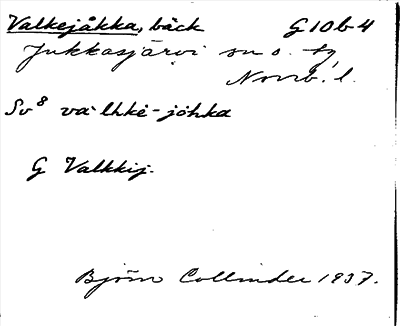 Valkejåkka, bäck G10b4
Jukkasjärvi sn o. tg
Norrb. l.
Sv8 va·lhkē-jåhka
G Valkkij.
Björn Collinder 1937.